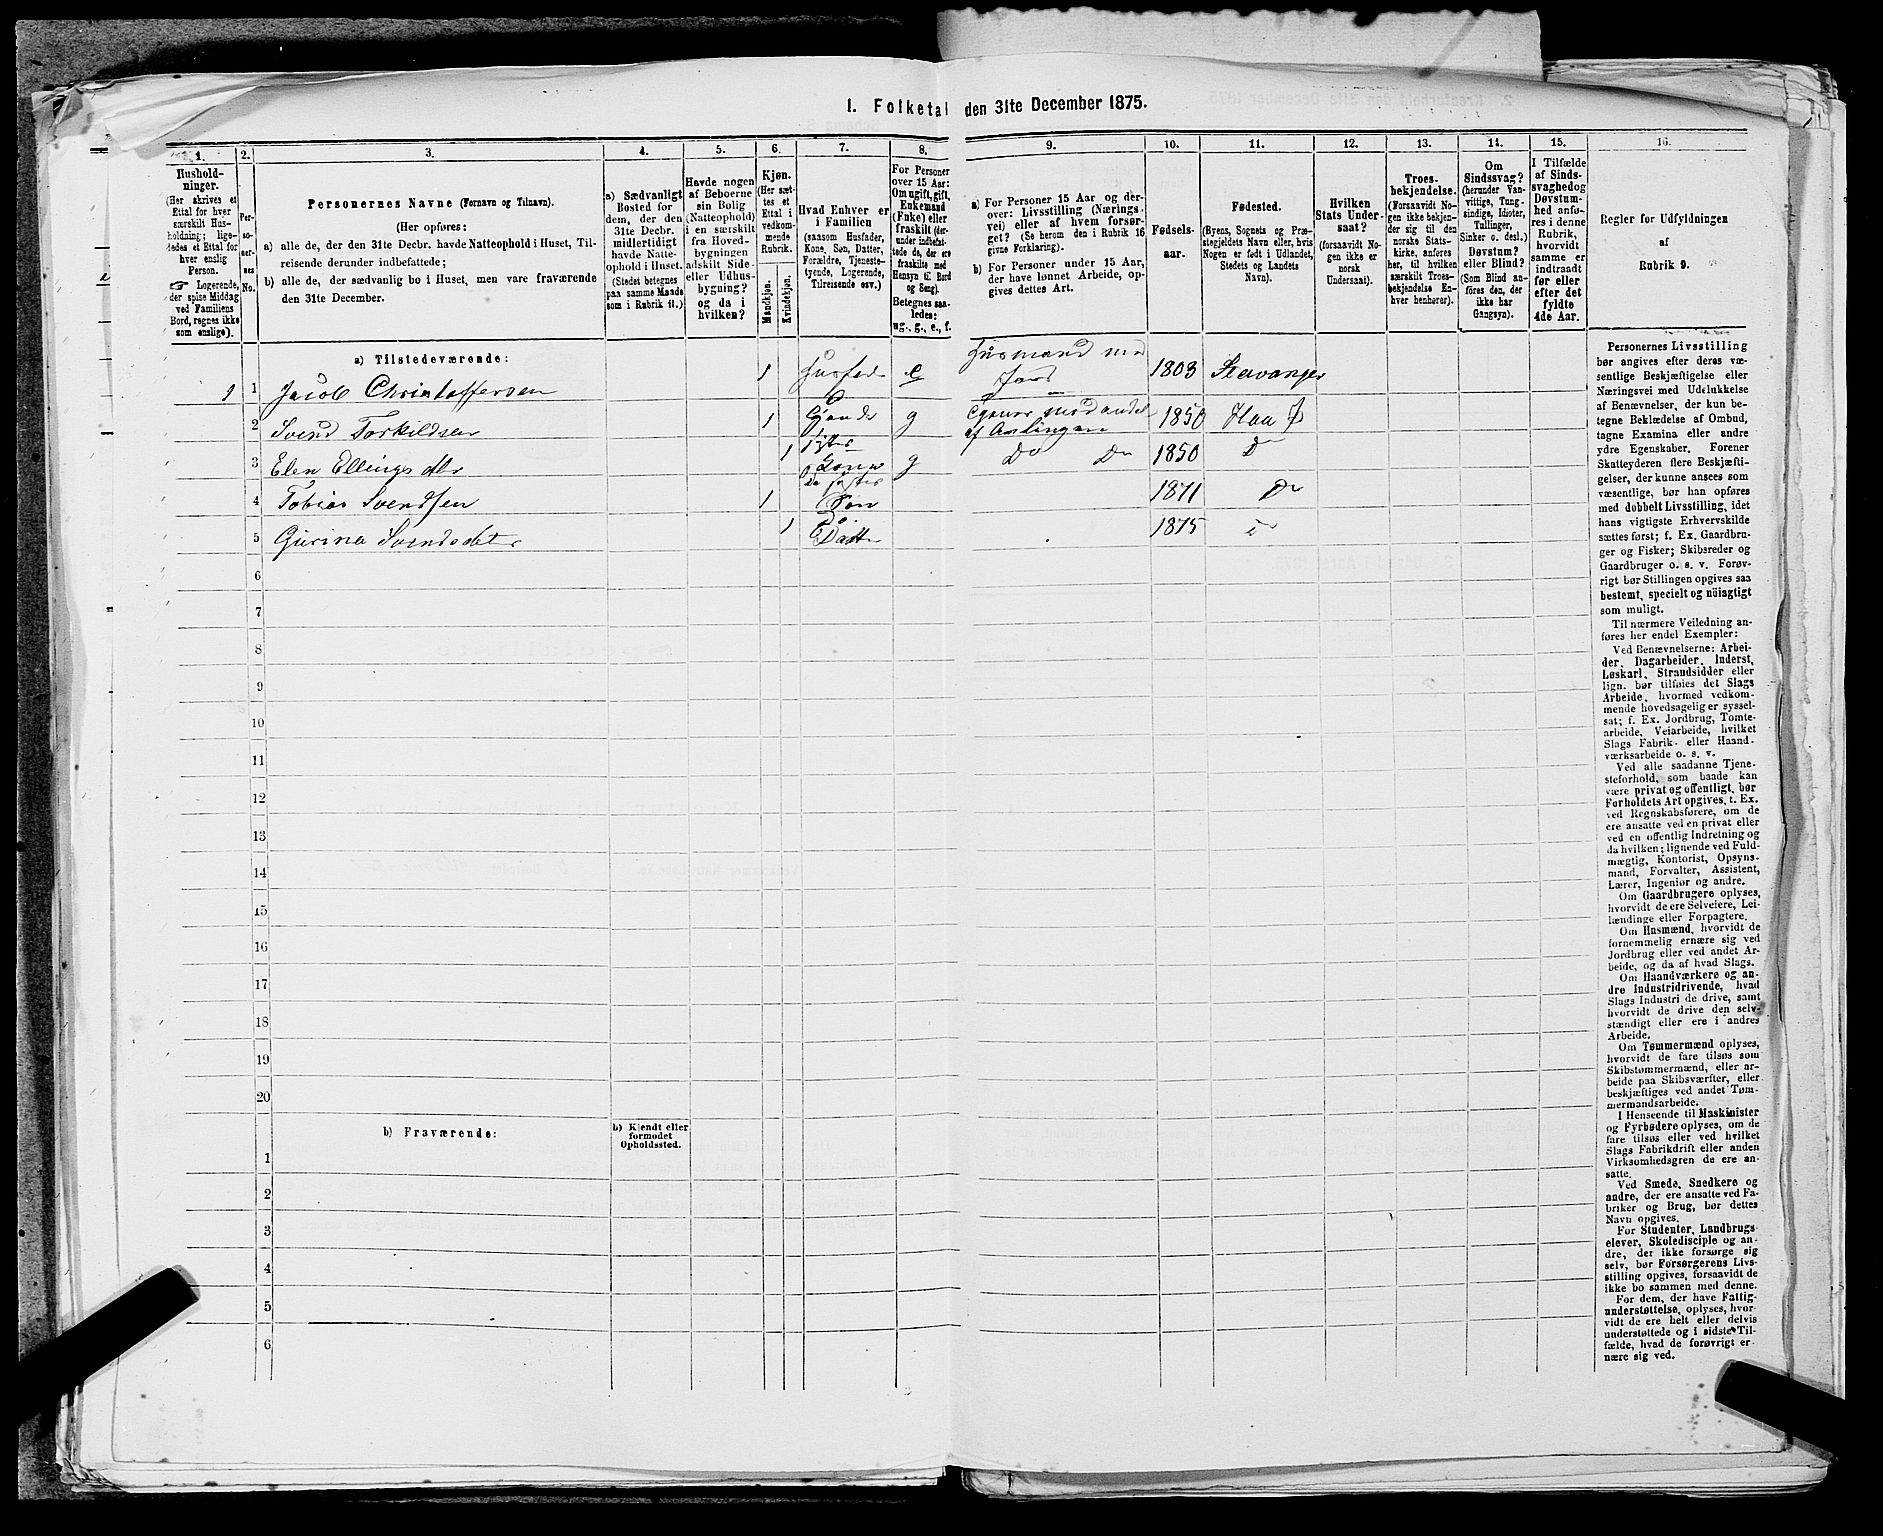 I. Folketal den 31te December 1875.
1. 2. 3. 4. 5. 6. 7. 8. 9. 10. 11. 12. 13. 14. 15. 16.
Hushold-
ninger.
(Her skrives et
Ettal for hver
særskilt Hus-
holdning; lige-
ledes et Ettal for
hver enslig
Person.
☞ Logerende,
der spise Middag
ved Familiens
Bord, regnes ikke
som enslige).
Per-
so-
ner-
nes
No.
Personernes Navne (Fornavn og Tilnavn).
(Her opføres:
a) alle de, der den 31te Decbr. havde Natteophold i Huset, Til-
reisende derunder indbefattede;
b) alle de, der sædvanlig bo i Huset, men vare fraværende
den 31te December.
a) Sædvanligt
Bosted for
dem, der den
31te Decbr.
midlertidigt
havde Natte-
ophold i Huset.
(Stedet betegnes
paa samme Maade
som i Rubrik 11.)
Havde nogen
af Beboerne
sin Bolig
(Natteophold)
i en særskilt
fra Hoved-
bygningen
adskilt Side-
eller Udhus-
bygning?
og da i
hvilken?
Kjøn.
(Her sæt-
tes et
Ettal i
vedkom-
mende
Rubrik.
Mandkjøn.
Kvindekjøn.
Hvad Enhver er
i Familien
(saasom Husfader,
Kone, Søn, Datter,
Forældre, Tjeneste-
tyende, Logerende,
Tilreisende osv.)
For Personer
over 15 Aar:
Om ugift, gift,
Enkemand
(Enke) eller
fraskilt (der-
under indbefat-
tede de, der ere
fraskilte med
Hensyn til Bord
og Seng).
Betegnes saa-
ledes:
ug., g., e., f.
a) For Personer 15 Aar og der-
over: Livsstilling (Nærings-
vei) eller af hvem forsør-
get? (Se herom den i Rubrik 16
givne Forklaring).
b) For Personer under 15 Aar,
der have lønnet Arbeide, op-
gives dettes Art.
Fødsels-
aar.
Fødested.
(Byens, Sognets og Præ-
stegjeldets Navn eller, hvis
Nogen er født i Udlandet,
Stedets og Landets
Navn).
Hvilken
Stats Under-
saat?
(forsaavidt No-
gen ikke er
norsk
Undersaat).
Troes-
bekjendelse.
(Forsaavidt No-
gen ikke bekjen-
der sig til den
norske Stats-
kirke, anføres
her, til hvilken
særskilt Troes-
bekjendelse En-
hver henhører).
Om
Sindssvag?
(herunder Van-
vittige, Tung-
sindige, Idioter,
Tullinger,
Sinker o. desl.)
Døvstum?
eller Blind?
(Som Blind an-
føres den, der
ikke har
Gangsyn).
I Tilfælde
af Sinds-
svaghed og
Døvstum-
hed anfø-
res i denne
Rubrik,
hvorvidt
samme er
indtraadt
før eller
efter det
fyldte
4de Aar.
Regler for Udfyldningen
af
Rubrik 9.
a) Tilstedeværende:
1 1 Jacob Christoffersen 1 Husfader e Husmand med Jord 1803 Stavanger
2 Svend Torkildsen 1 g 1850 Haa
3 Elen Ellingsdtr 1 Kone g Do Do 1850 Do
4 Tobias Svendsen 1 Søn 1871 Do
5 Gurina Svendsdter 1 Do. Datter 1875
6
7
8
9
10
11
12
13
14
15
16
17
18
19
20
b) Fraværende:
b) Kjendt eller
formodet
Opholdssted.
1
2
3
4
5
6
Personernes Livsstilling
bør angives efter deres væ-
sentlige Beskjæftigelse eller
Næringsvei med Udelukkelse
af Benævnelser, der kun be-
tegne Beklædelse af Ombud,
tagne Examina eller andre
ydre Egenskaber. Forener
Skatteyderen flere Beskjæfti-
gelser, der kunne ansees som
væsentlige, bør han opføres
med dobbelt Livsstilling, idet
hans vigtigste Erhvervskilde
sættes først; f. Ex. Gaardbru-
ger og Fisker; Skibsreder og
Gaardbruger o. s. v. Forøv-
rigt bør Stillingen opgives saa
bestemt, specielt og nöiagtigt
som muligt.
Til nærmere Veiledning an-
føres her endel Exempler:
Ved Benævnelserne: Arbei-
der, Dagarbeider, Inderst,
Løskarl, Strandsidder eller
lign. bør tilføies det Slags
Arbeide, hvormed vedkom-
mende hovedsagelig er syssel-
sat; f. Ex. Jordbrug, Tomte-
arbeide, Veiarbeide, hvilket
Slags Fabrik- eller Haand-
værksarbeide o. s. v.
Ved alle saadanne Tjene-
steforhold, som baade kan
være privat og offentligt, bør
Forholdets Art opgives, t. Ex.
ved Regnskabsførere, om de
ere ansatte ved en privat eller
ved en offentlig Indretning og
da hvilken; lignende ved Fuld-
mægtig, Kontorist, Opsyns-
mand, Forvalter, Assistent,
Lærer, Ingeniør og andre.
Om Gaardbrugere oplyses,
hvorvidt de ere Selveiere, Lei-
lændinge eller Forpagtere.
Om Husmænd, hvorvidt de
fornemmelig ernære sig ved
Jordbrug eller ved andet Ar-
beide, og da af hvad Slags.
Om Haandværkere og an-
dre Industridrivende, hvad
Slags Industri de drive, samt
hvorvidt de drive den selv-
stændigt eller ere i andres
Arbeide.
Om Tømmermænd oplyses,
hvorvidt de fare tilsøs som
Skibstømmermænd, eller ar-
beide paa Skibsværfter, eller
beskjæftiges ved andet Tøm-
mermandsarbeide.
I Henseende til Maskinister
og Fyrbødere oplyses, om de
fare tilsøs eller ved hvilket
Slags Fabrikdrift eller anden
Virksomhedsgren de ere an-
satte.
Ved Smede, Snedkere og
andre, der ere ansatte ved Fa-
briker og Brug, bør dettes
Navn opgives.
For Studenter, Landbrugs-
elever, Skoledisciple og an-
dre, der ikke forsørge sig
selv, bør Forsørgerens Livs-
stilling opgives, forsaavidt de
ikke bo sammen med denne.
For dem, der have Fattig-
understøttelse, oplyses, hvor-
vidt de ere helt eller delvis
understøttede og i sidste Til-
fælde, hvad de forøvrigt er-
nære sig ved.